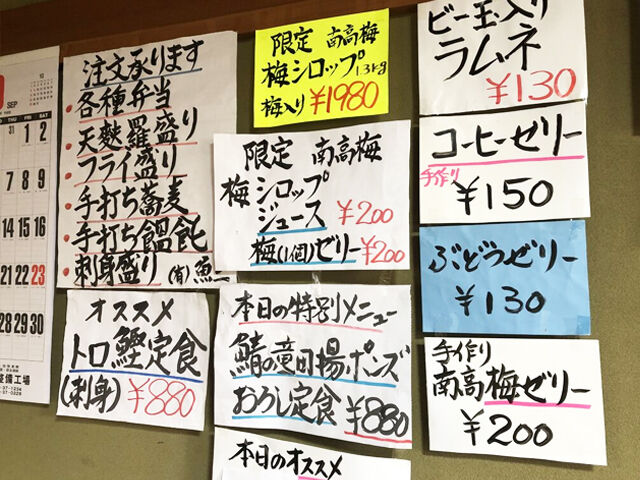 SEP
10
THU
FRI
SAT
31
1
2
7
8
9
14
15
16
21
22
23
28
29
30
整備工場
37-1234
37-0328
注文承ります
各種弁当
天麩羅盛り
フライ盛り
手打ち蕎麦
手打ち饂飩
刺身盛り (有)魚
オススメ
トロ鰹定食
(刺身) ¥880
限定 南高梅
梅シロップ 1.3kg
梅入り ¥1980
限定 南高梅
梅シロップ
ジュース ¥200
梅(1個)ゼリー ¥200
本日の特別メニュー
鯖の竜田揚ポンズ
おろし定食 ¥880
本日のオススメ
ビー玉入り
ラムネ
¥130
コーヒーゼリー
手作り
¥150
ぶどうゼリー
¥130
手作り
南高梅ゼリー
¥200